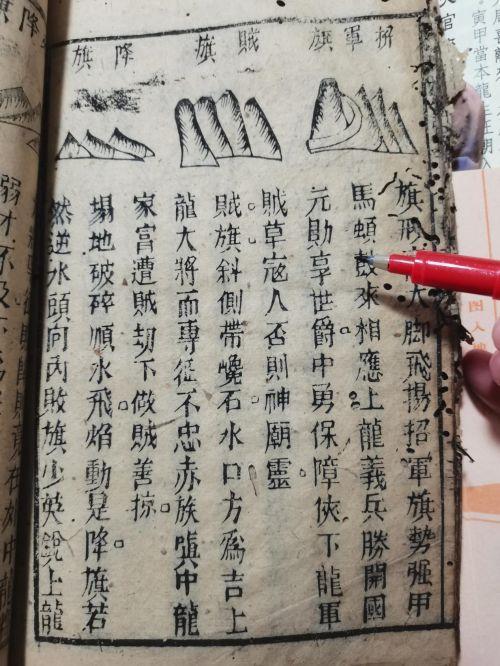 招軍旗
賊旗
降旗
旗形大脚飛揚招軍旗勢强甲
馬頓鼓來相應上龍義兵勝開國
元勛享世爵中勇保障俠下龍軍
賊草寇人否則神廟靈
賊旗斜側帶巉石水口方爲吉上
龍大將而專征不忠赤族嗔中龍
家富遭賊刧下做賊善掠
塌地破碎順水飛焰動是降旗若
然逆水頭向內敗旗少英銳上龍
降旗
弱才不及